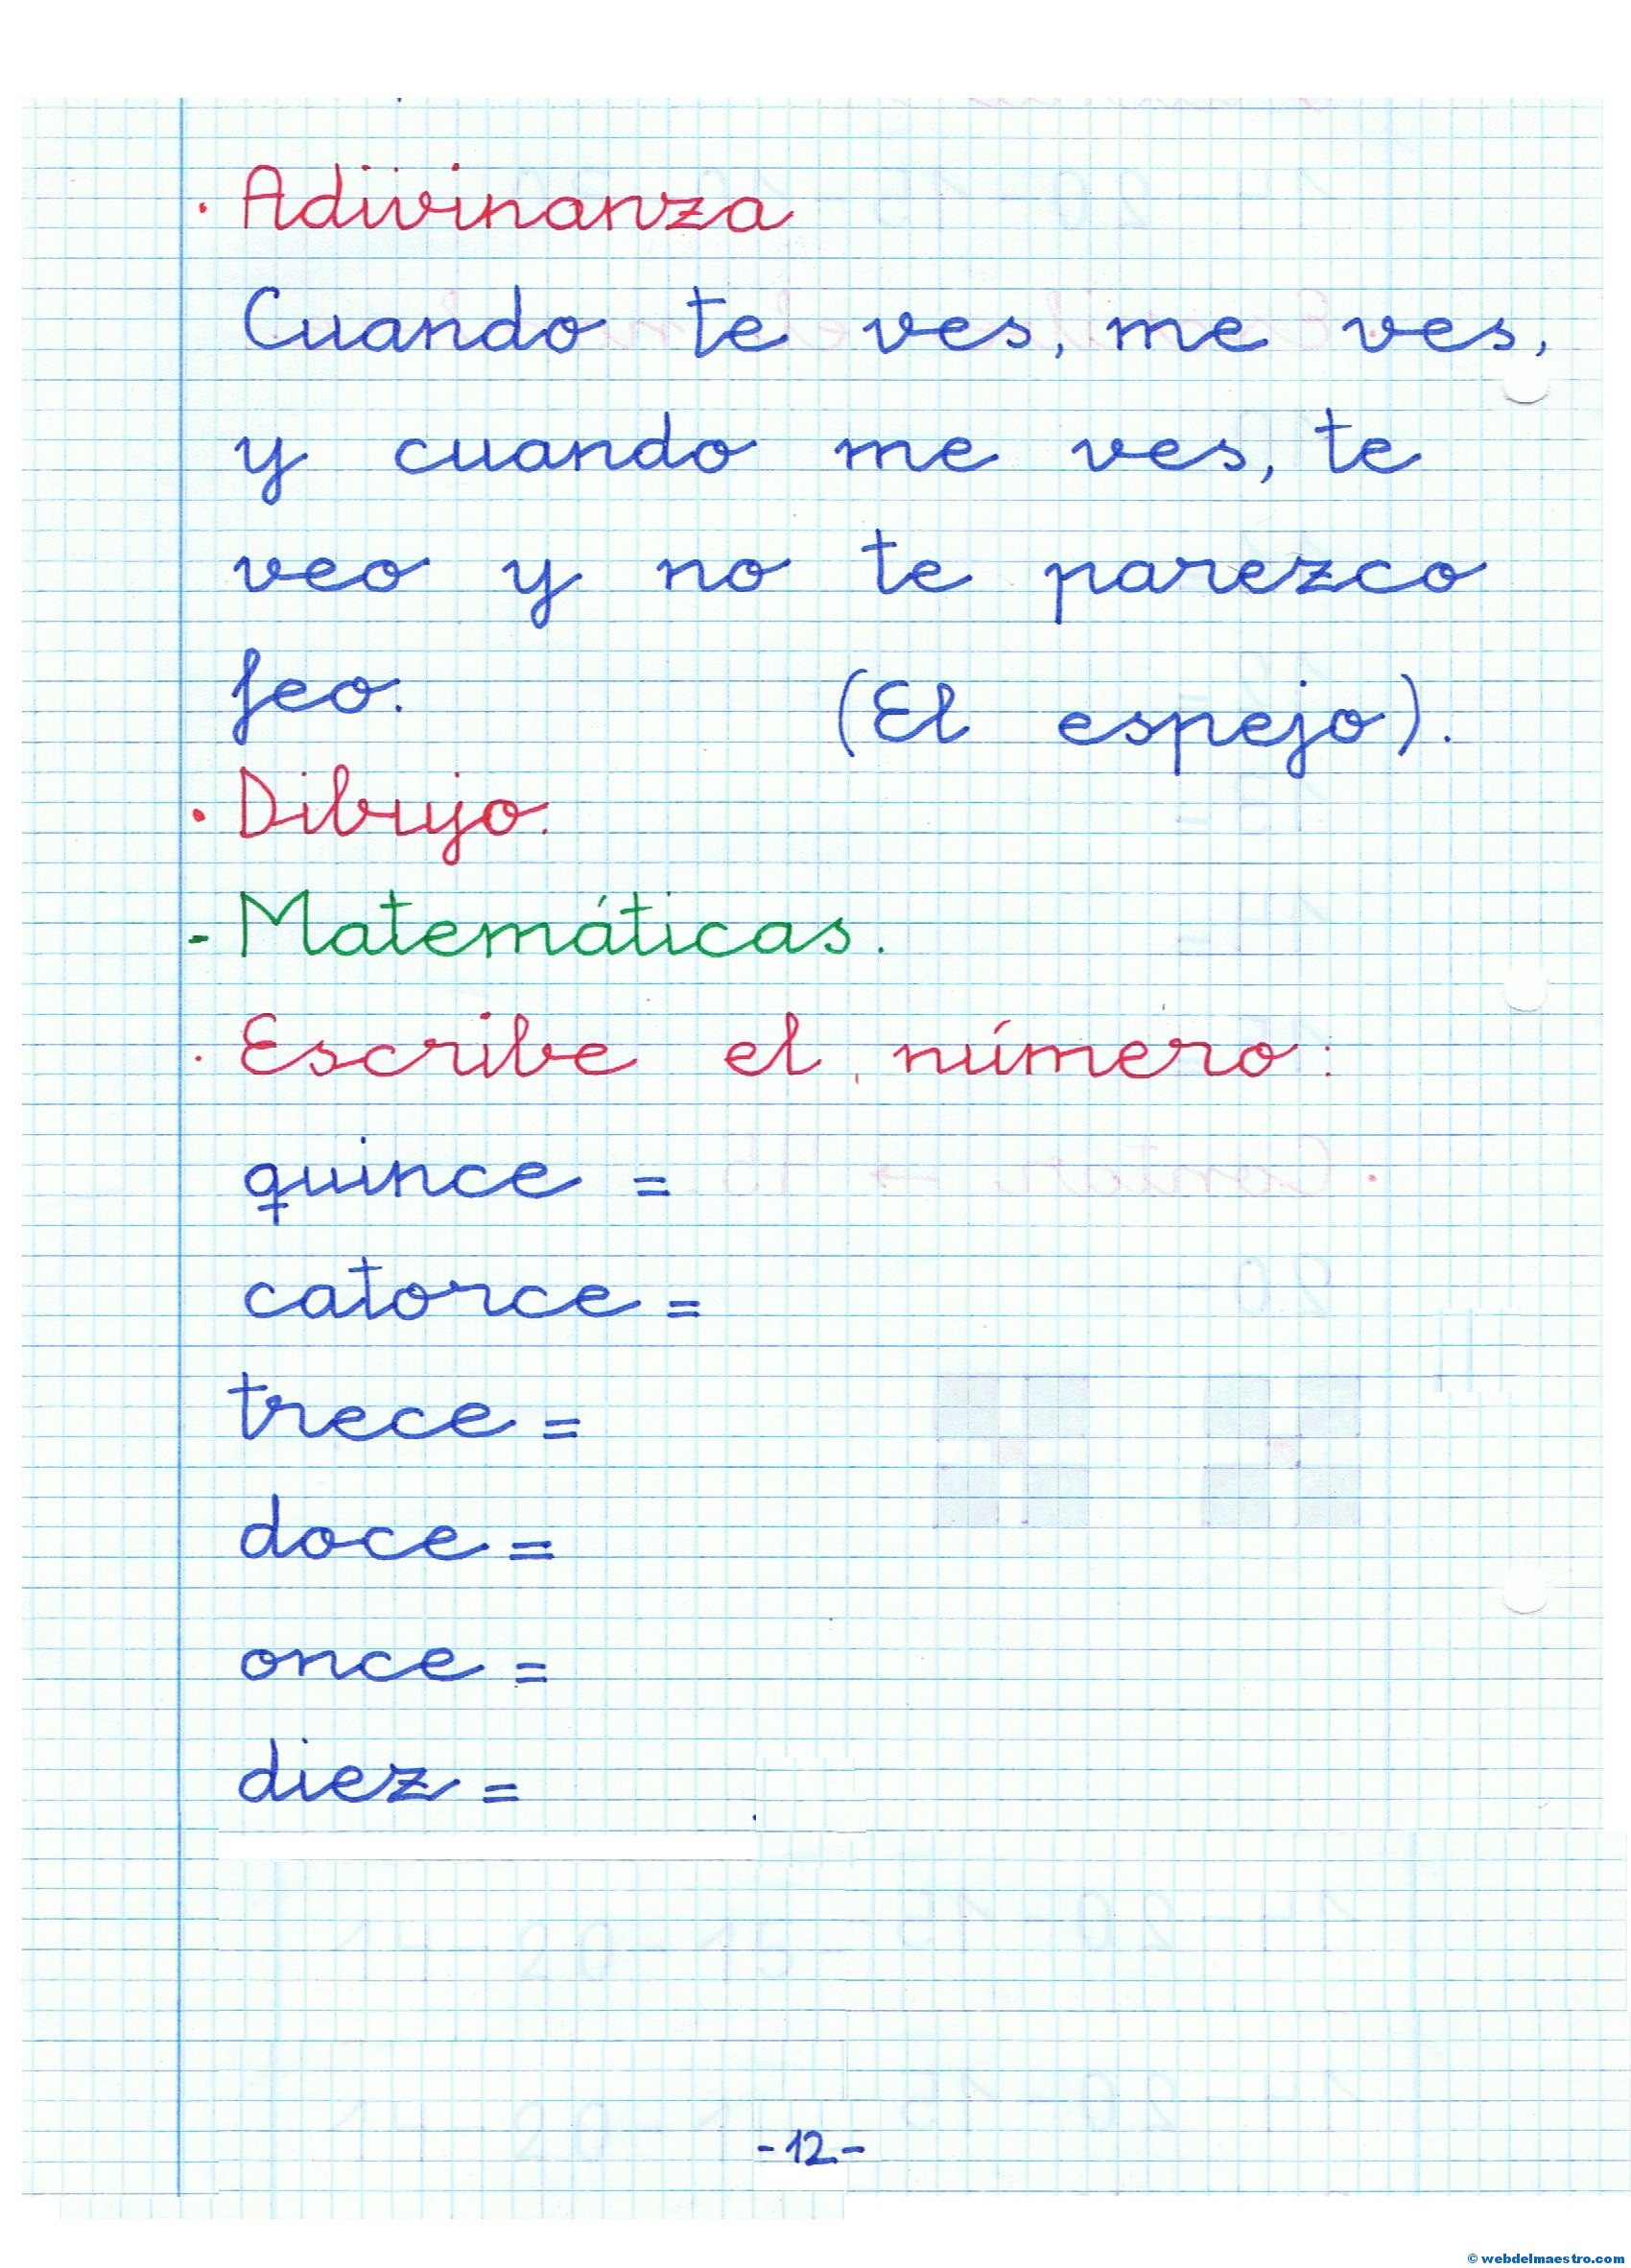 · Adivinanza
Cuando te ves, me ves,
y cuando me ves, te
veo y no te parezco
feo. (El espejo).
· Dibujo.
- Matemáticas.
· Escribe el número:
quince =
catorce =
trece =
doce =
once =
diez =
-12-
© webdelmaestro.com